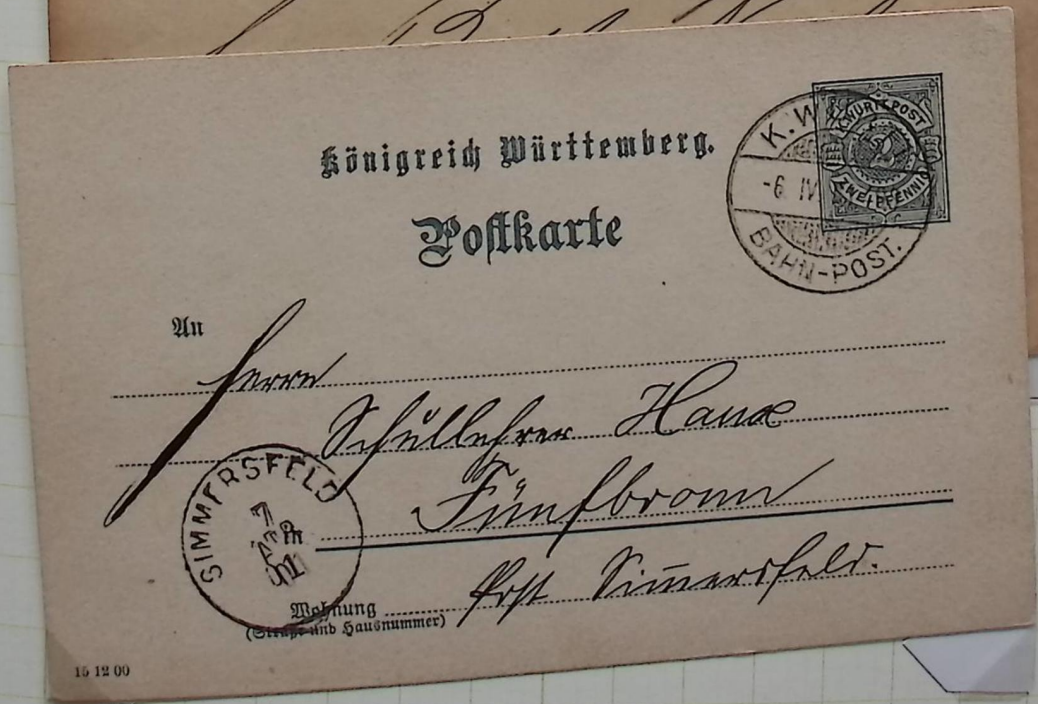 Königreich Württemberg.
Postkarte
K. W
-6 IV
BAHN-POST.
K. WÜRTT. POST
2
ZWEI PFENNIG
An
Herrn
Schullehrer
Fünfbronn
in
Post Sim̅ersfeld.
SIMMERSFELD
7
Wohnung
(Straße und Hausnummer)
15 12 00